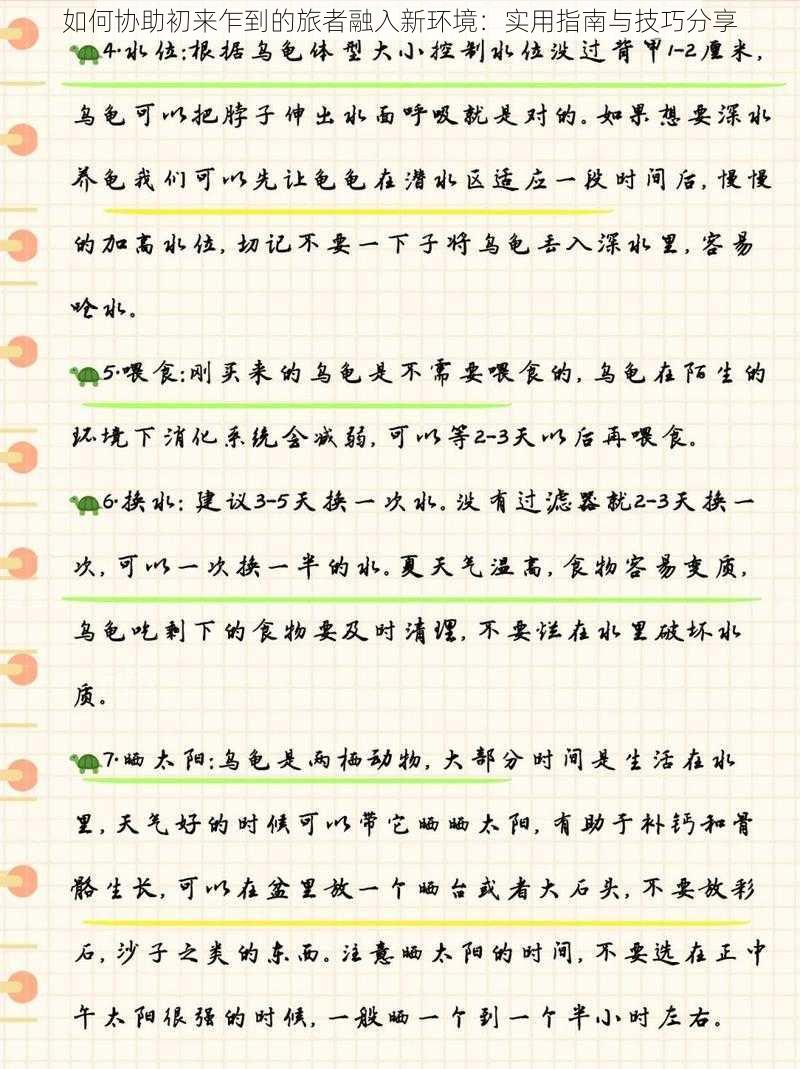 如何协助初来乍到的旅者融入新环境：实用指南与技巧分享
4·水位：根据乌龟体型大小控制水位没过背甲1-2厘米，
乌龟可以把脖子伸出水面呼吸就是对的。如果想要深水
养龟我们可以先让龟龟在潜水区适应一段时间后，慢慢
的加高水位，切记不要一下子将乌龟丢入深水里，容易
呛水。
5·喂食：刚买来的乌龟是不需要喂食的，乌龟在陌生的
环境下消化系统会减弱，可以等2-3天以后再喂食。
6·换水：建议3-5天换一次水。没有过滤器就2-3天换一
次，可以一次换一半的水。夏天气温高，食物容易变质，
乌龟吃剩下的食物要及时清理，不要烂在水里破坏水
质。
7·晒太阳：乌龟是两栖动物，大部分时间是生活在水
里，天气好的时候可以带它晒晒太阳，有助于补钙和骨
骼生长，可以在盆里放一个晒台或者大石头，不要放彩
石，沙子之类的东西。注意晒太阳的时间，不要选在正中
午太阳很强的时候，一般晒一个到一个半小时左右。